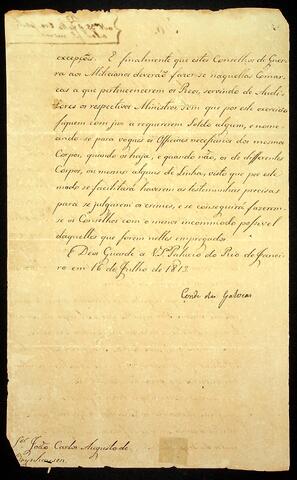 excepções. E finalmente que estes Conselhos de Guer-
ra aos Milicianos deverão fazer-se naquellas Comar-
cas a que pertencerem os Reos, servindo de Audi-
tores os respectivos Ministros, sem que por este exercicio
fiquem com jus a requererem Soldo algum, e nome-
ando-se para vogaes os Officiaes necessarios dos mesmos
Corpos, quando os haja, e quando não, os de differentes
Corpos, ou mesmo alguns de Linha, visto que por este
modo se facilitará haverem as testimunhas precisas
para se julgarem os crimes, e se conseguirá fazerem-
se os Conselhos com o menor incommodo possivel
daquelles que forem nelles empregados.
Deos Guarde a V. Sª. Palacio do Rio de Janei-
ro em 16 de Julho de 1813.
Conde das Galveas
Sor. João Carlos Augusto de
Oeynhausen.